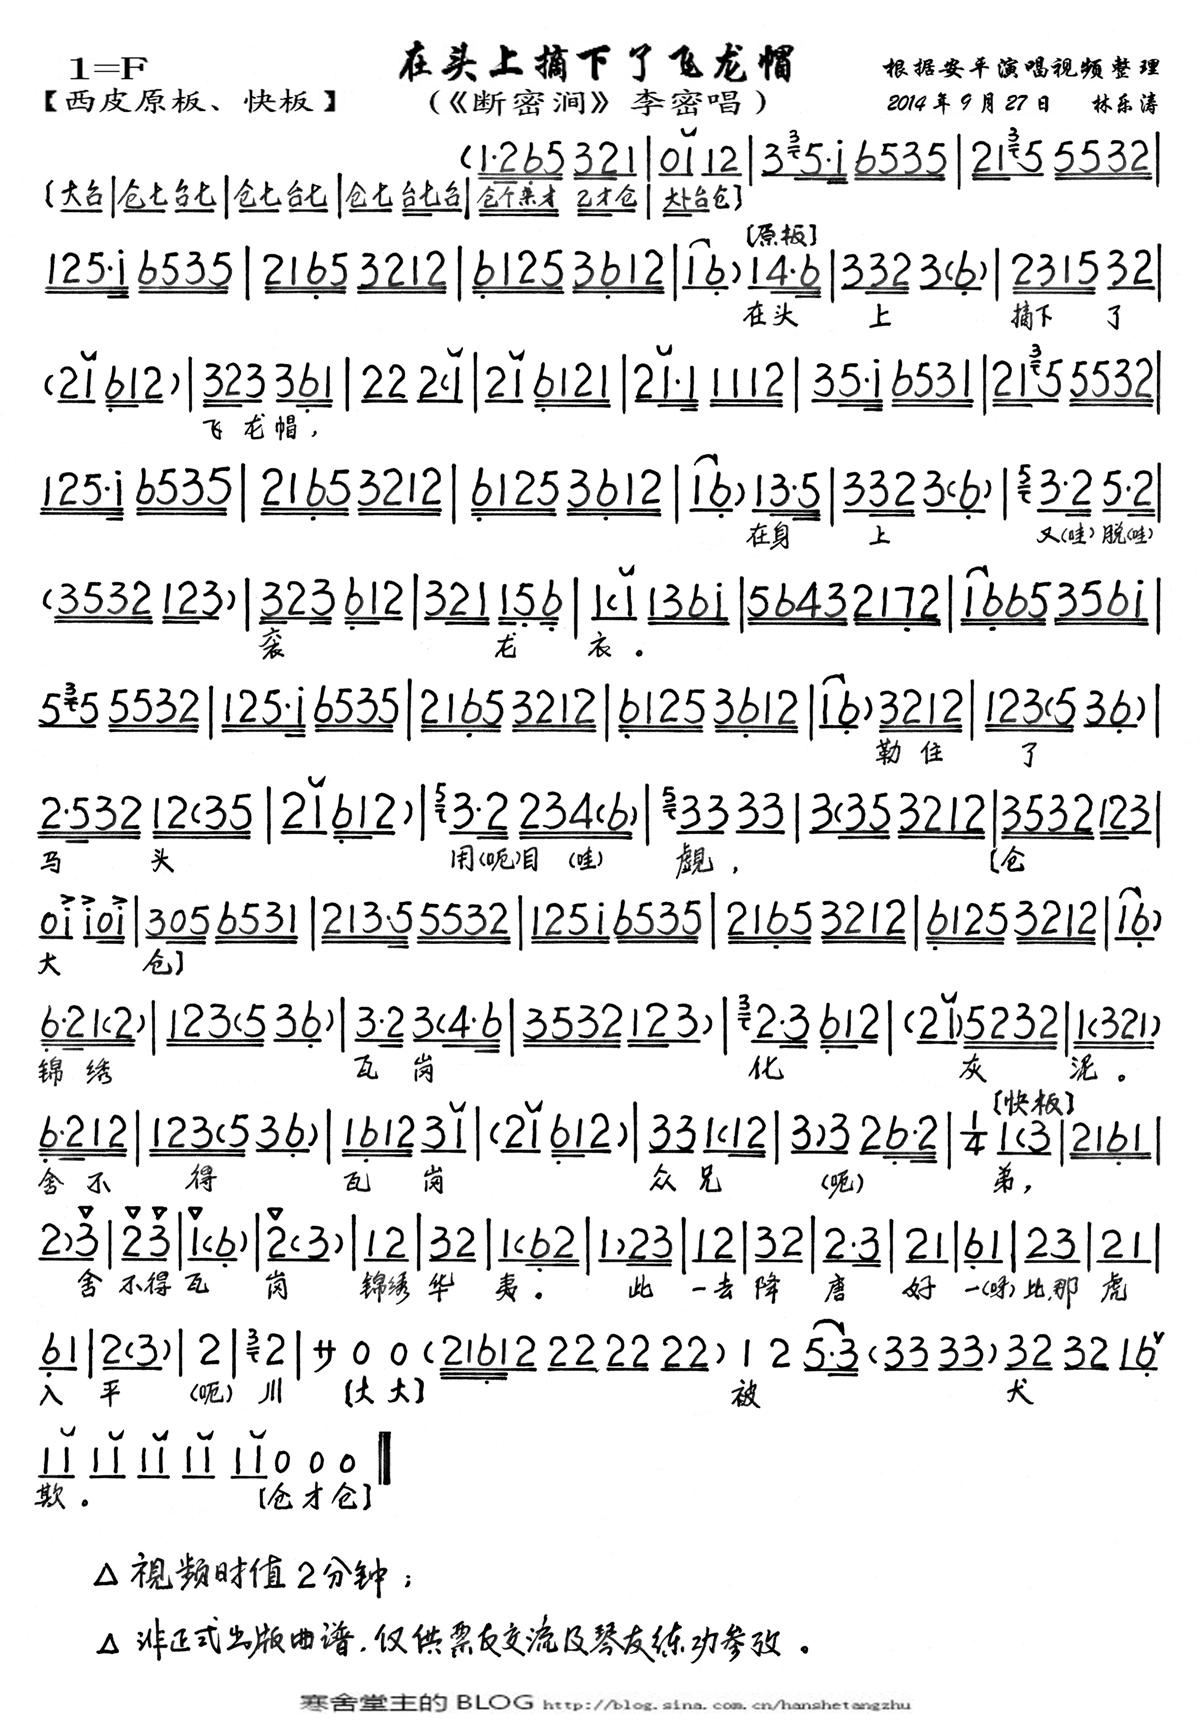 在头上摘下了飞龙帽
1=F
【西皮原板、快板】
(《断密涧》李密唱)
根据安平演唱视频整理
2014年9月27日 林乐涛
(1·265 321 | 01 12 | 3 5·i 6535 | 21 5 5532 |
[大台 | 仓七台七 | 仓七台七 | 仓七台七台 | 仓个来才 乙才仓 | 大卜台仓]
[原板]
125·i 6535 | 2165 3212 | 6125 3612 | 16) 14·6 | 332 3(6) | 2315 32 |
在头 上 摘下 了
(21 612) | 323 361 | 22 2(i | 2i 6121 | 2i·1 1112 | 35·i 6531 | 21 5 5532 |
飞龙帽，
125·i 6535 | 2165 3212 | 6125 3612 | 16) 13·5 | 332 3(6) | 3·2 5·2 |
在身 上 又(哇)脱(哇)
(3532 123) | 323 612 | 321 156 | 1(i 136i | 5643 2172 | 1665 356i |
衮 龙 衣。
5 5 5532 | 125·i 6535 | 2165 3212 | 6125 3612 | 16) 3212 | 123(5 36) |
勒住 了
2·532 12(35 | 2i 612) | 3·2 234(6) | 33 33 | 3(35 3212 | 3532 123 |
马 头 用(呃)目(哇) 觑， [仓
0i i0i | 305 6531 | 213·5 5532 | 125i 6535 | 2165 3212 | 6125 3212 | 16)
大 仓]
6·21(2) | 123(5 36) | 3·2 3(4·6 | 3532 123) | 2·3 612 | (2i) 5232 | 1(321)
锦绣 瓦岗 化 灰 泥。
[快板]
6·212 | 123(5 36) | 1612 3i | (2i 612) | 33 1(12 | 3)3 26·2 | 1/4 1(3 | 2161 |
舍不 得 瓦 岗 众兄 (呃) 弟，
2)3 | 23 | 1(6) | 2(3) | 12 | 32 | 1(62 | 1)23 | 12 | 32 | 2·3 | 21 | 61 | 23 | 21 |
舍不得瓦 岗 锦绣华 夷。 此 一去降 唐 好 一(呀)比，那 虎
61 | 2(3) | 2 | 2 | サ 0 0 (21612 22 22 22) 1 2 5·3 (33 33) 32 32 16
入 平 (呃) 川 [大大] 被 犬
1i 1i 1i 1i 1i 0 0 0
欺。 [仓才仓]
△ 视频时值2分钟；
△ 非正式出版曲谱，仅供票友交流及琴友练功参考。
寒舍堂主的BLOG http://blog.sina.com.cn/hanshetangzhu